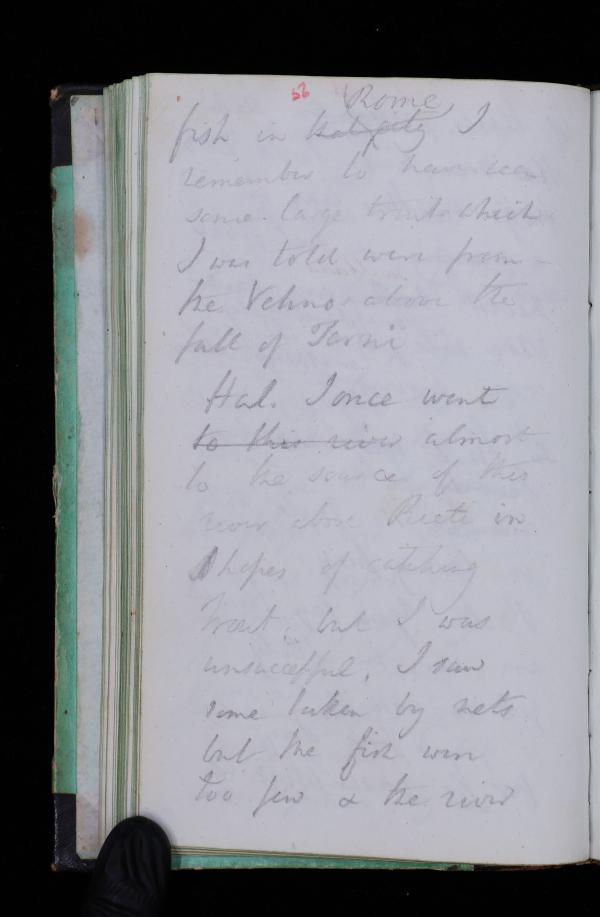 52
Rome
fish in that city I
remember to have seen
some large trout which
I was told were from
the Velino above the
fall of Terni
Hal. I once went
to this river almost
to the source of this
river above Rieti in
hopes of catching
trout, but I was
unsuccessful. I saw
some taken by nets
but the fish were
too few & the river